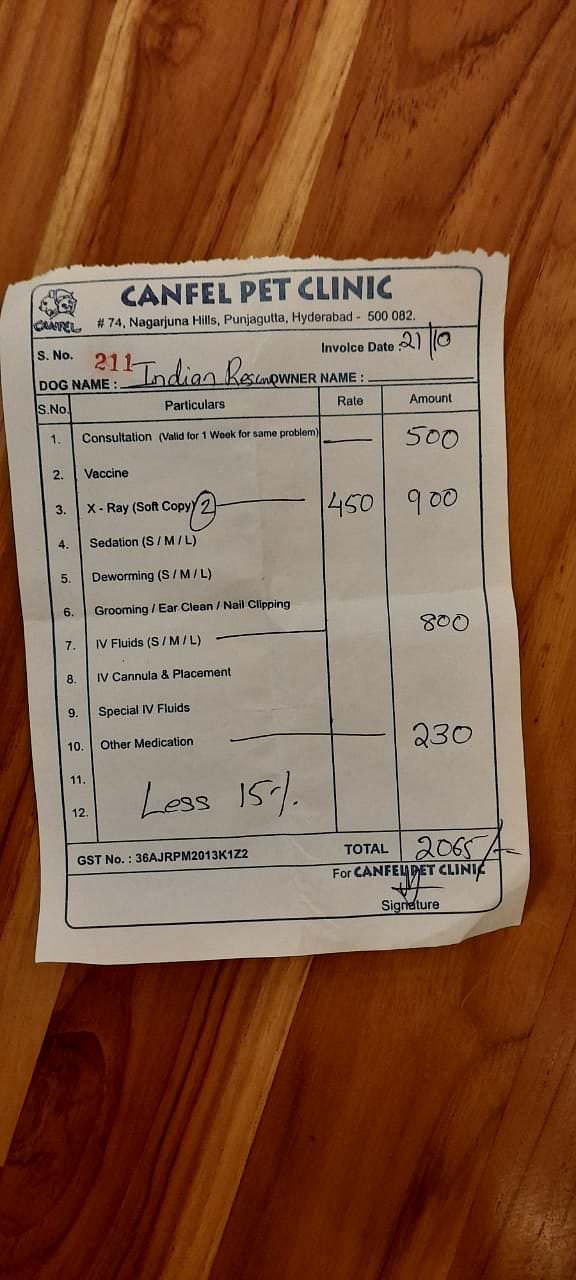 CANFEL PET CLINIC
CANFEL
# 74, Nagarjuna Hills, Punjagutta, Hyderabad - 500 082.
S. No. 211 Invoice Date : 21/10
DOG NAME : Indian OWNER NAME :
S.No. Particulars Rate Amount
1. Consultation (Valid for 1 Week for same problem) 500
2. Vaccine
3. X - Ray (Soft Copy) 2 450 900
4. Sedation (S / M / L)
5. Deworming (S / M / L)
6. Grooming / Ear Clean / Nail Clipping
7. IV Fluids (S / M / L) 800
8. IV Cannula & Placement
9. Special IV Fluids
10. Other Medication 230
11.
12. Less 15%.
GST No. : 36AJRPM2013K1Z2 TOTAL 2065/-
For CANFEL PET CLINIC
Signature